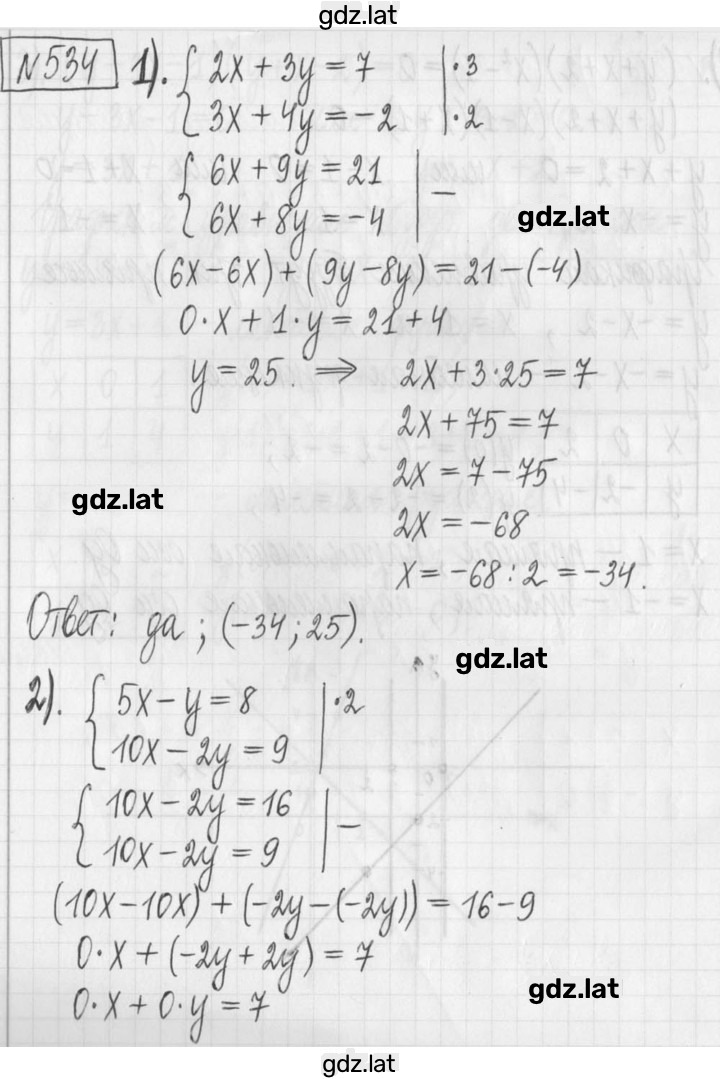 gdz.lat
№534 1). { 2x + 3y = 7 | ·3
3x + 4y = -2 | ·2
{ 6x + 9y = 21 | -
6x + 8y = -4
gdz.lat
(6x - 6x) + (9y - 8y) = 21 - (-4)
0·x + 1·y = 21 + 4
y = 25. ⇒ 2x + 3·25 = 7
2x + 75 = 7
2x = 7 - 75
gdz.lat
2x = -68
x = -68 : 2 = -34.
Ответ: да ; (-34 ; 25).
gdz.lat
2). { 5x - y = 8 | ·2
10x - 2y = 9
{ 10x - 2y = 16 | -
10x - 2y = 9
(10x - 10x) + (-2y - (-2y)) = 16 - 9
0·x + (-2y + 2y) = 7
gdz.lat
0·x + 0·y = 7
gdz.lat